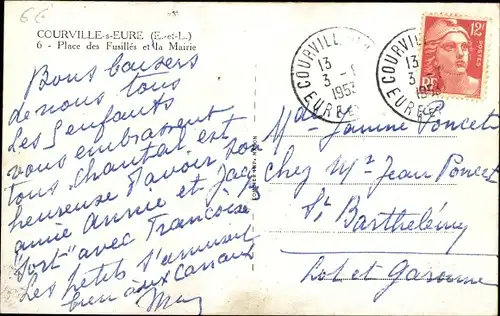 COURVILLE-s-EURE (E.-et-L.)
6 - Place des Fusillés et la Mairie
Bons baisers
de nous tous
Les enfants
vous embrassent
tous Chantal est
heureuse d'avoir son
amie Annie et Jac
"fort" avec Françoise
Les petits s'amusent
bien aux Canaux
COURVILLE
13
3 -
1953
EURE
COURVILLE
13
3
195
EURE
12F
POSTES
RF
Mme Janine Poncet
chez Mr Jean Poncet
St Barthélémy
Lot et Garonne